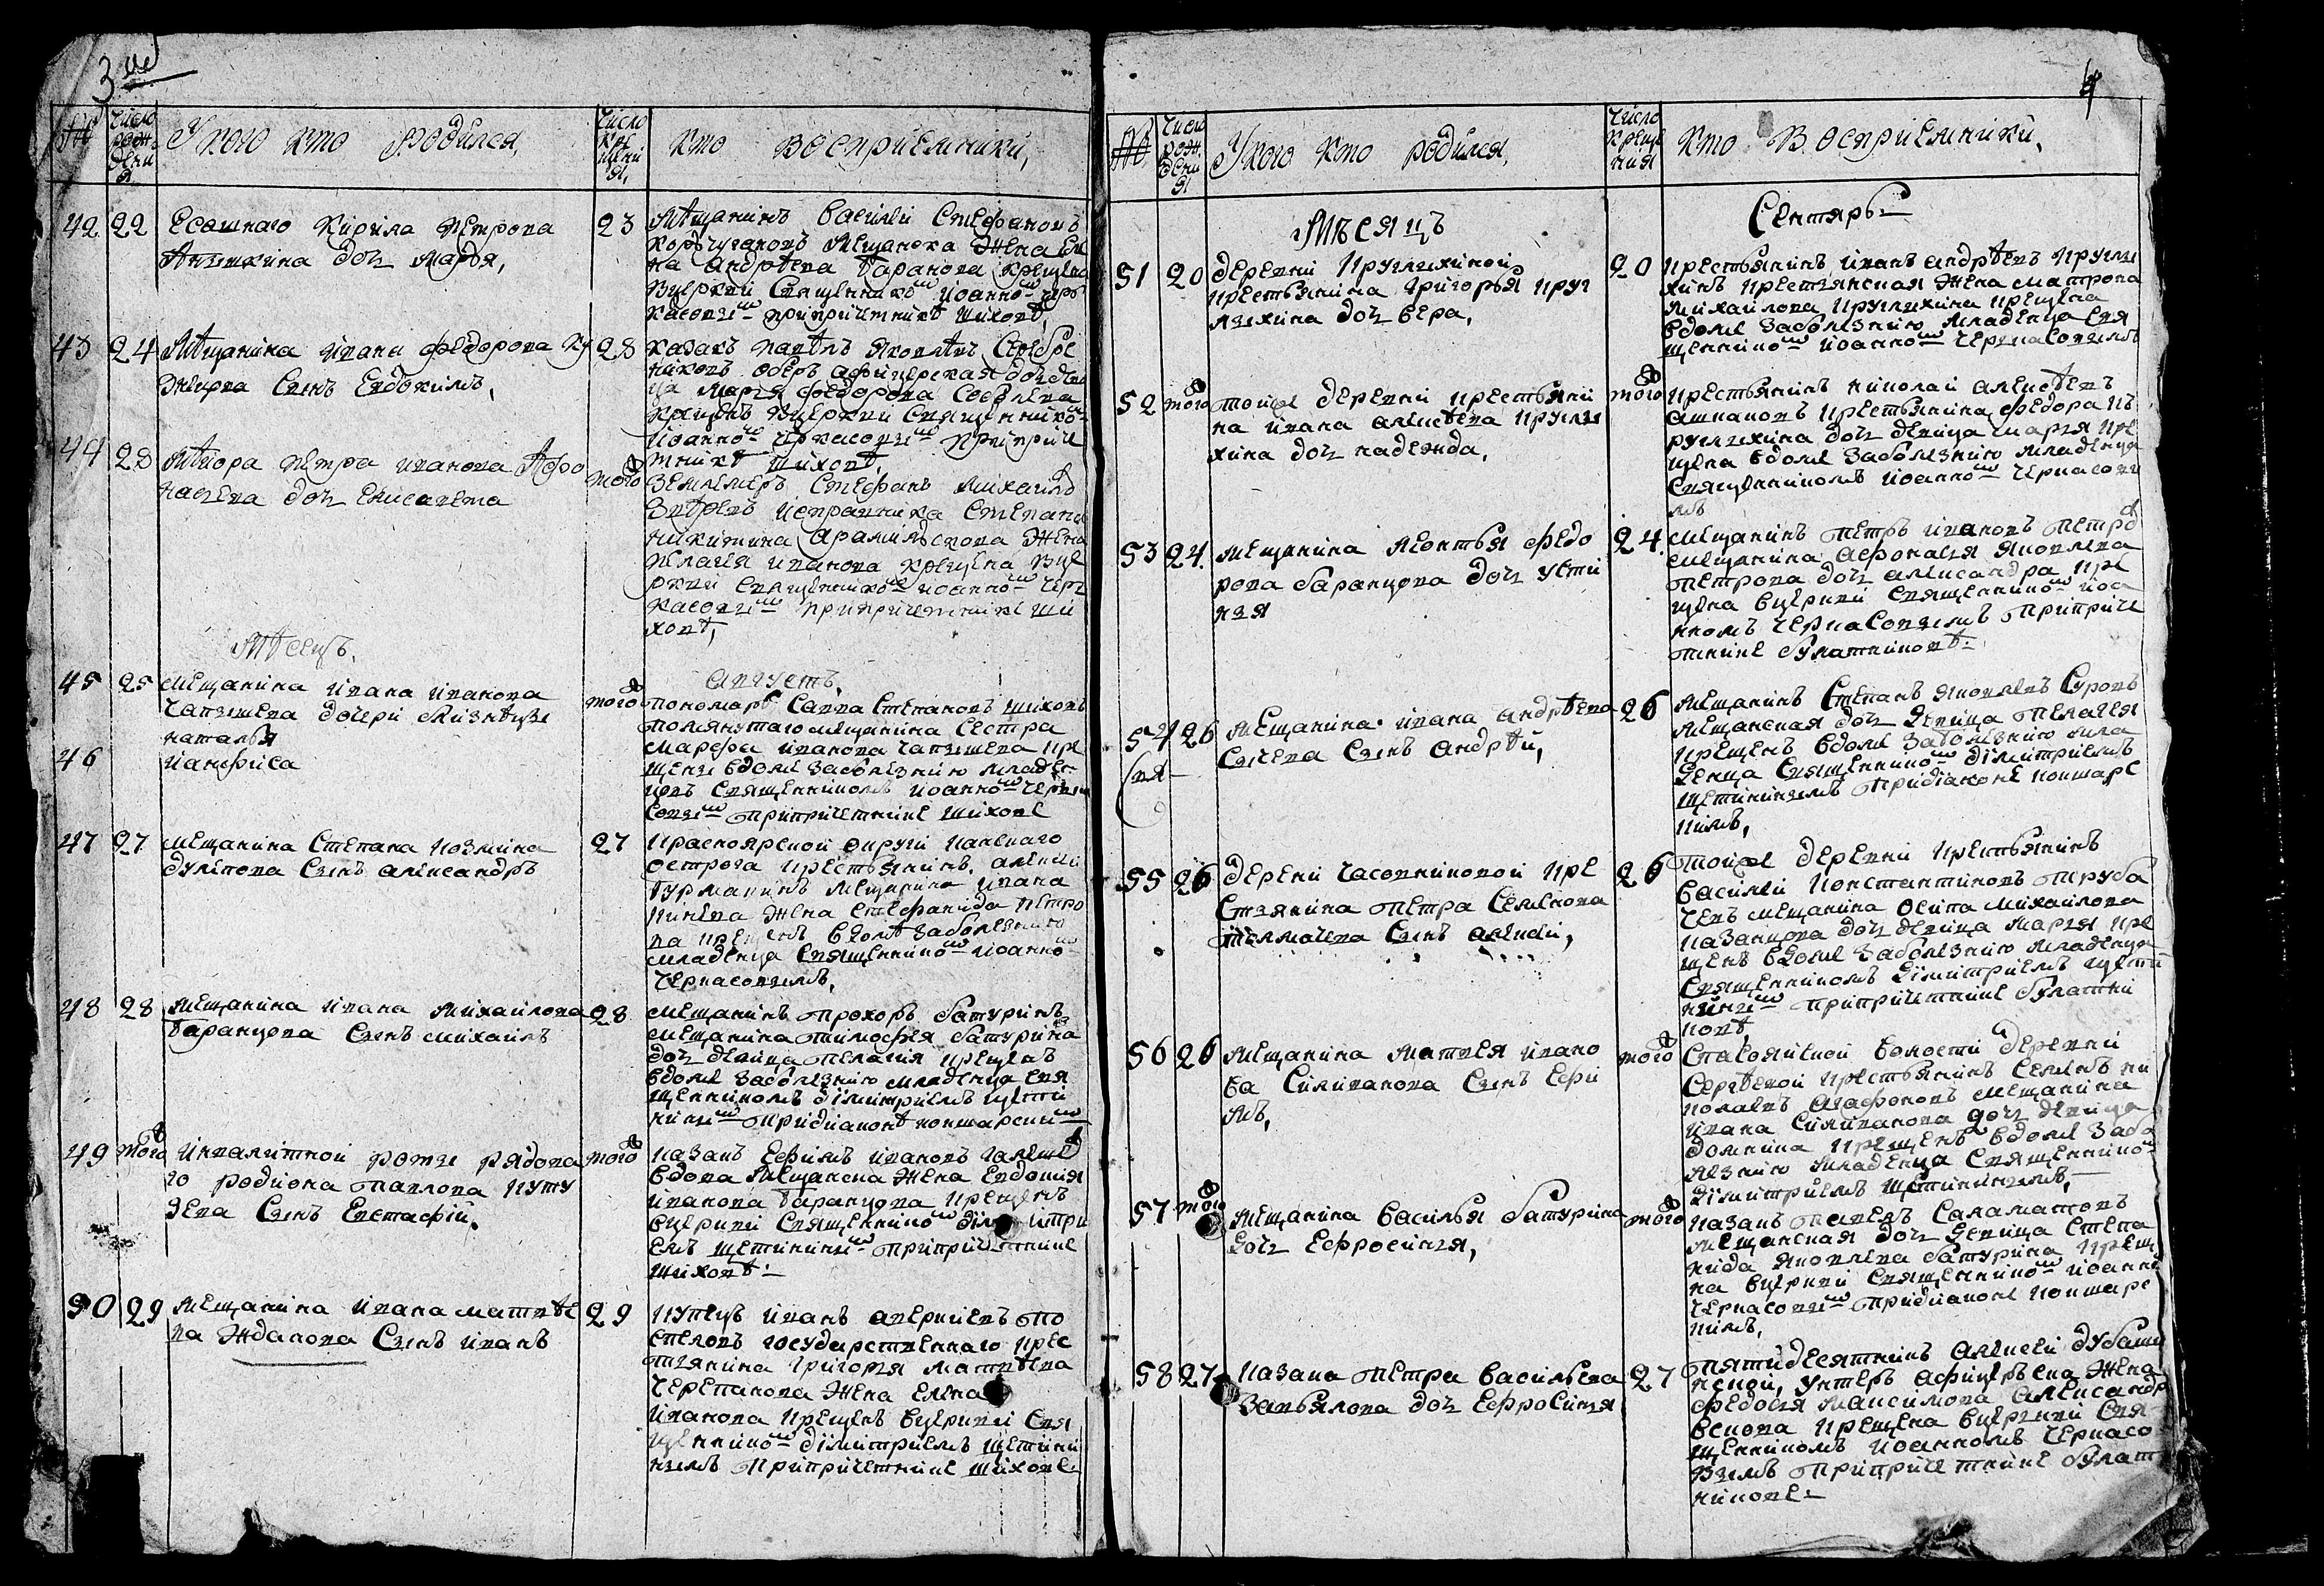 3
№
Число рождения
У кого кто родился,
Число крещения,
кто восприемники,
42 22
Ясашнаго Кирила Петрова
дочь Марья,
23
Мѣщанинъ Василей Стефановъ
Мещанска Жена Еле
на Андрѣева Баранова крещена
Вцеркви Священникомъ Иоанномъ Чер
касовымъ припричетникѣ Шиховѣ,
43 24
Мѣщанина Ивана Федорова
Сынъ Евдокимъ,
28
казакъ Павелъ Яковлевъ Серебре
никовъ Обер афицерская дочь деви
ца Марья Федорова Соболева
крещенъ Вцеркви Священникомъ
Иоанномъ Черкасовымъ Приприче
тникѣ Шиховѣ,
44 28
Маіора Петра Иванова Афо
насьева дочь Елисавета
того
Землемеръ Стефанъ Михайло
Исправника Степана
Никитина Арамильскова Жена
Пелагея Иванова крещена Вце
ркви Священникомъ Иоанномъ Чер
касовымъ припричетнике Ши
ховѣ,
Мѣсецъ.
Августъ,
45 25
Мещанина Ивана Иванова
Чапышева дочери близнецы
Наталья
46
И Анфиса
того
пономарь Савва Степановъ Шиховъ
помянутаго мещанина Сестра
Марфа Иванова Чапышева кре
щены вдоме заболезнию младен
цовъ Священникомъ Иоанномъ Черка
совымъ припричетнике Шихове
47 27
Мещанина Степана Козмина
Дулепова Сынъ Александръ
27
Красноярской округи Канскаго
острога крестьянинъ Алексей
Гурманинъ Мещанина Ивана
Жена Стефанида Петро
ва крещенъ вдомѣ заболезнию
младенца Священникомъ Иоанномъ
Черкасовымъ,
48 28
Мещанина Ивана Михайлова
Баранцова Сынъ Михаилъ
28
Мещанинъ Прохоръ Батуринъ
Мещанина Тимофея Батурина
дочь девица Пелагия крещенъ
вдоме заболезнию младенца Свя
щенникомъ Димитриемъ Щети
нинымъ придиаконѣ кокшарскимъ
49 того
Инвалитной роты рядова
го Родиона Павлова Куту
зева Сынъ Евстафий.
того
казакъ Ефимъ Ивановъ
вдова Мещанска Жена Евдокия
Иванова Баранцова крещенъ
вцеркви Священникомъ Димитри
емъ Щетининымъ припричетнике
Шиховѣ.
50 29
Мещанина Ивана Матвѣе
ва Жданова Сынъ Иванъ
29
купецъ Иванъ Аверкиевъ По
спеловъ государственнаго крес
тьянина Григорья Матвѣева
Черепанова Жена Елена
Иванова крещенъ вцеркви Свя
щенникомъ Димитриемъ Щетини
нымъ припричетнике Шихове.
4
№
Число рождения
У кого кто родился,
Число крещения
Кто Восприемники,
Мѣсяцъ
Сентярь
51 20
деревни Круглыхиной
крестьянина Григорья Круг
лыхина дочь Вера,
20
крестьянинъ Иванъ Андрѣевъ Круглы
хинъ крестьянская Жена Матрона
Михайлова Круглыхина крещена
вдоме заболезнию младенца Свя
щенникомъ Иоанномъ Черкасовымъ
52 того
тойже деревни крестьяни
на Ивана Алексѣева Круглы
хина дочь Надежда,
того
крестьянинъ Николай Алексѣевъ
крестьянина Федора Къ
руглыхина дочь девица Марья кре
щена вдоме заболезнию младенца
Священникомъ Иоанномъ Черкасовы
мъ
53 24.
Мещанина Леонтья Федо
рова Баранцова дочь Усти
нья
24.
Мещанинъ Петръ Ивановъ Петро
мещанина Афонасия Яковлева
Петрова дочь Александра кре
щена вцеркви Священникомъ Иоа
нномъ Черкасовымъ припричет
тнике Булатниковѣ.
54 26
Мещанина Ивана Андрѣева
Сычева Сынъ Андрѣй,
26
Мещанинъ Степанъ Яковлевъ Суровъ
Мещанская дочь девица Пелагея
крещенъ вдоме заболезнию мла
денца Священникомъ Димитриемъ
Щетининымъ придиаконе кокшарс
кимъ,
55 26
Деревни Часовниковой кре
стьянина Петра Семенова
Толмачева Сынъ Алексей,
26
тойже деревни крестьянинъ
Василей Константиновъ Труба
чевъ Мещанина Осипа Михайлова
казанцова дочь девица Марья кре
щенъ вдоме заболезнию младенца
Священникомъ Димитриемъ Щети
нинымъ припричетнике Булатни
ковѣ
56 26
Мещанина Матвея Ивано
ва Силиванова Сынъ Ефи
мъ,
того
волости деревни
Сергѣевой крестьянинъ Семенъ Ни
колаевъ Агафоновъ мещанина
Ивана Силиванова дочь девица
Домнина крещенъ вдоме забо
лезнию младенца Священникомъ
Димитриемъ Щетининымъ,
57 того
Мещанина Василья Батурина
дочь Ефросинья,
того
казакъ Павелъ Саламатовъ
Мещанская дочь девица Степа
нида Яковлева Батурина креще
на вцеркви Священникомъ Иоанно
Черкасовымъ придиаконе кокшарс
кимъ,
58 27
казака Петра Васильева
Завьялова дочь Ефросинья
27
пятидесятникъ Алексей Дубов
ской, Унтеръ афицерьска Жена
Федосья Максимова Александро
вскова крещена вцеркви Свя
щенникомъ Иоанномъ Черкасо
вымъ припричетнике Булат
никове.